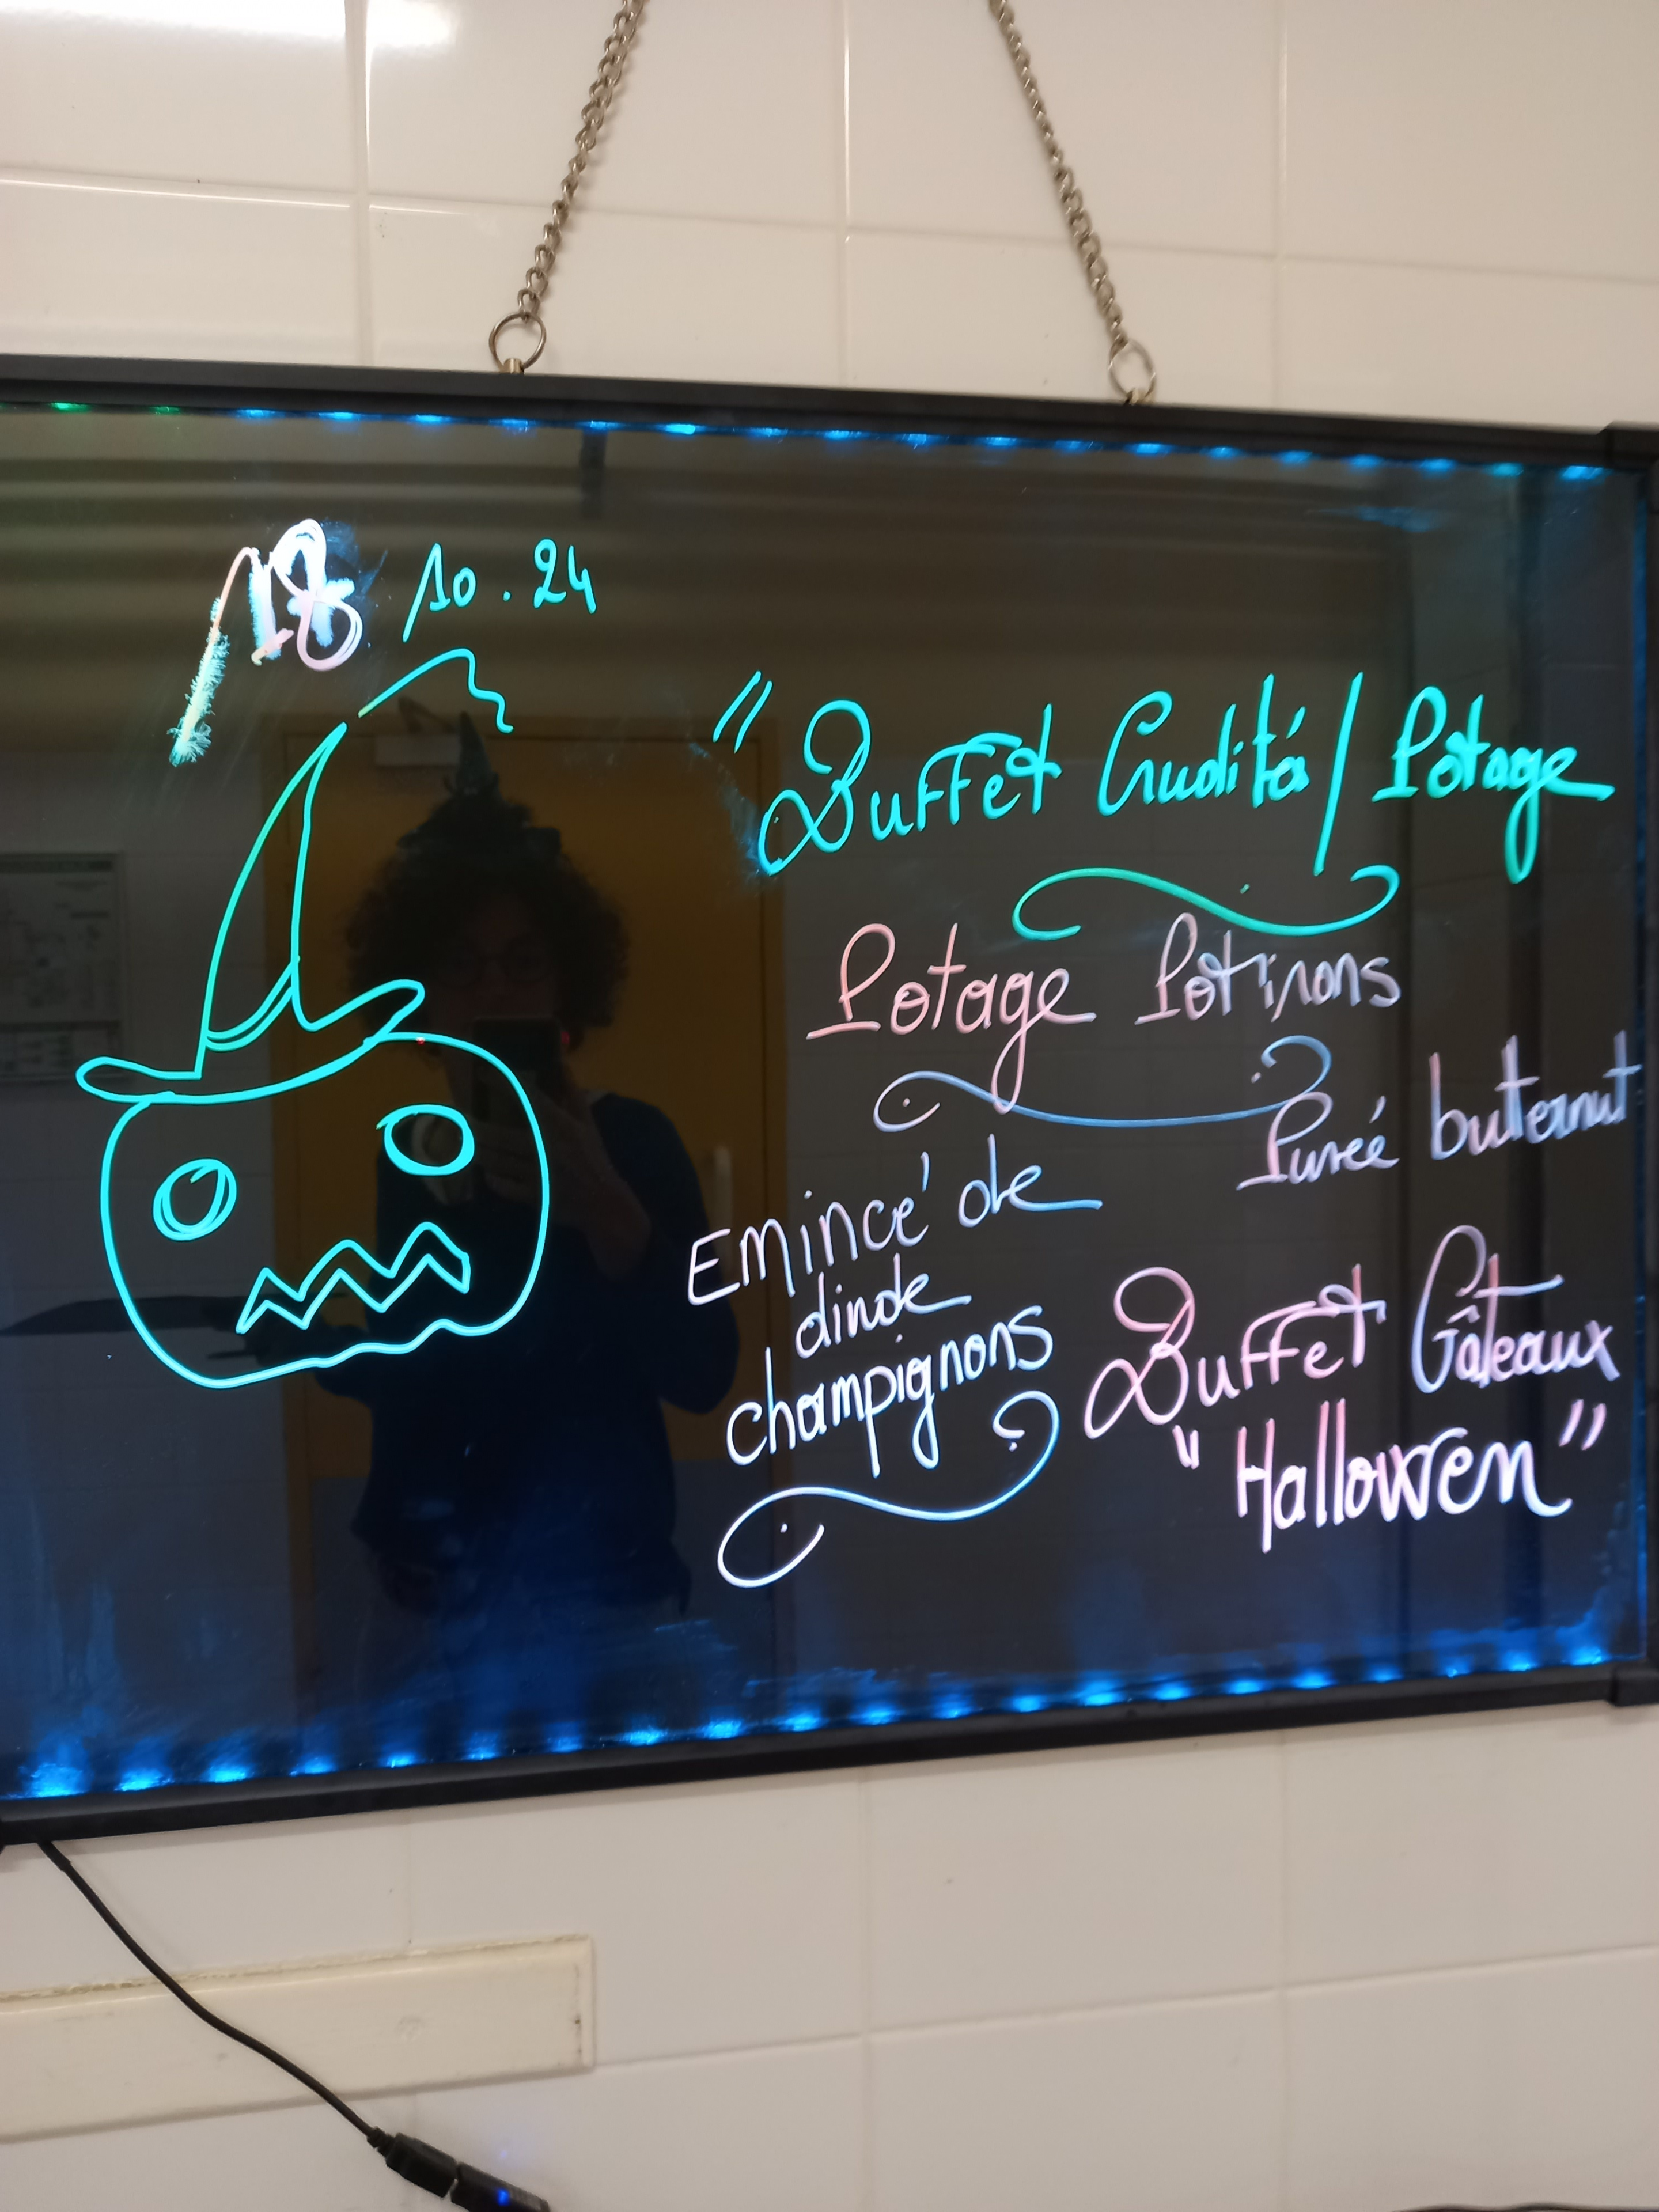 18 10.24
"Buffet Crudités / Potage
Potage Potirons
Purée butternut
Emincé de
dinde
champignons
Buffet Gâteaux
"Halloween"